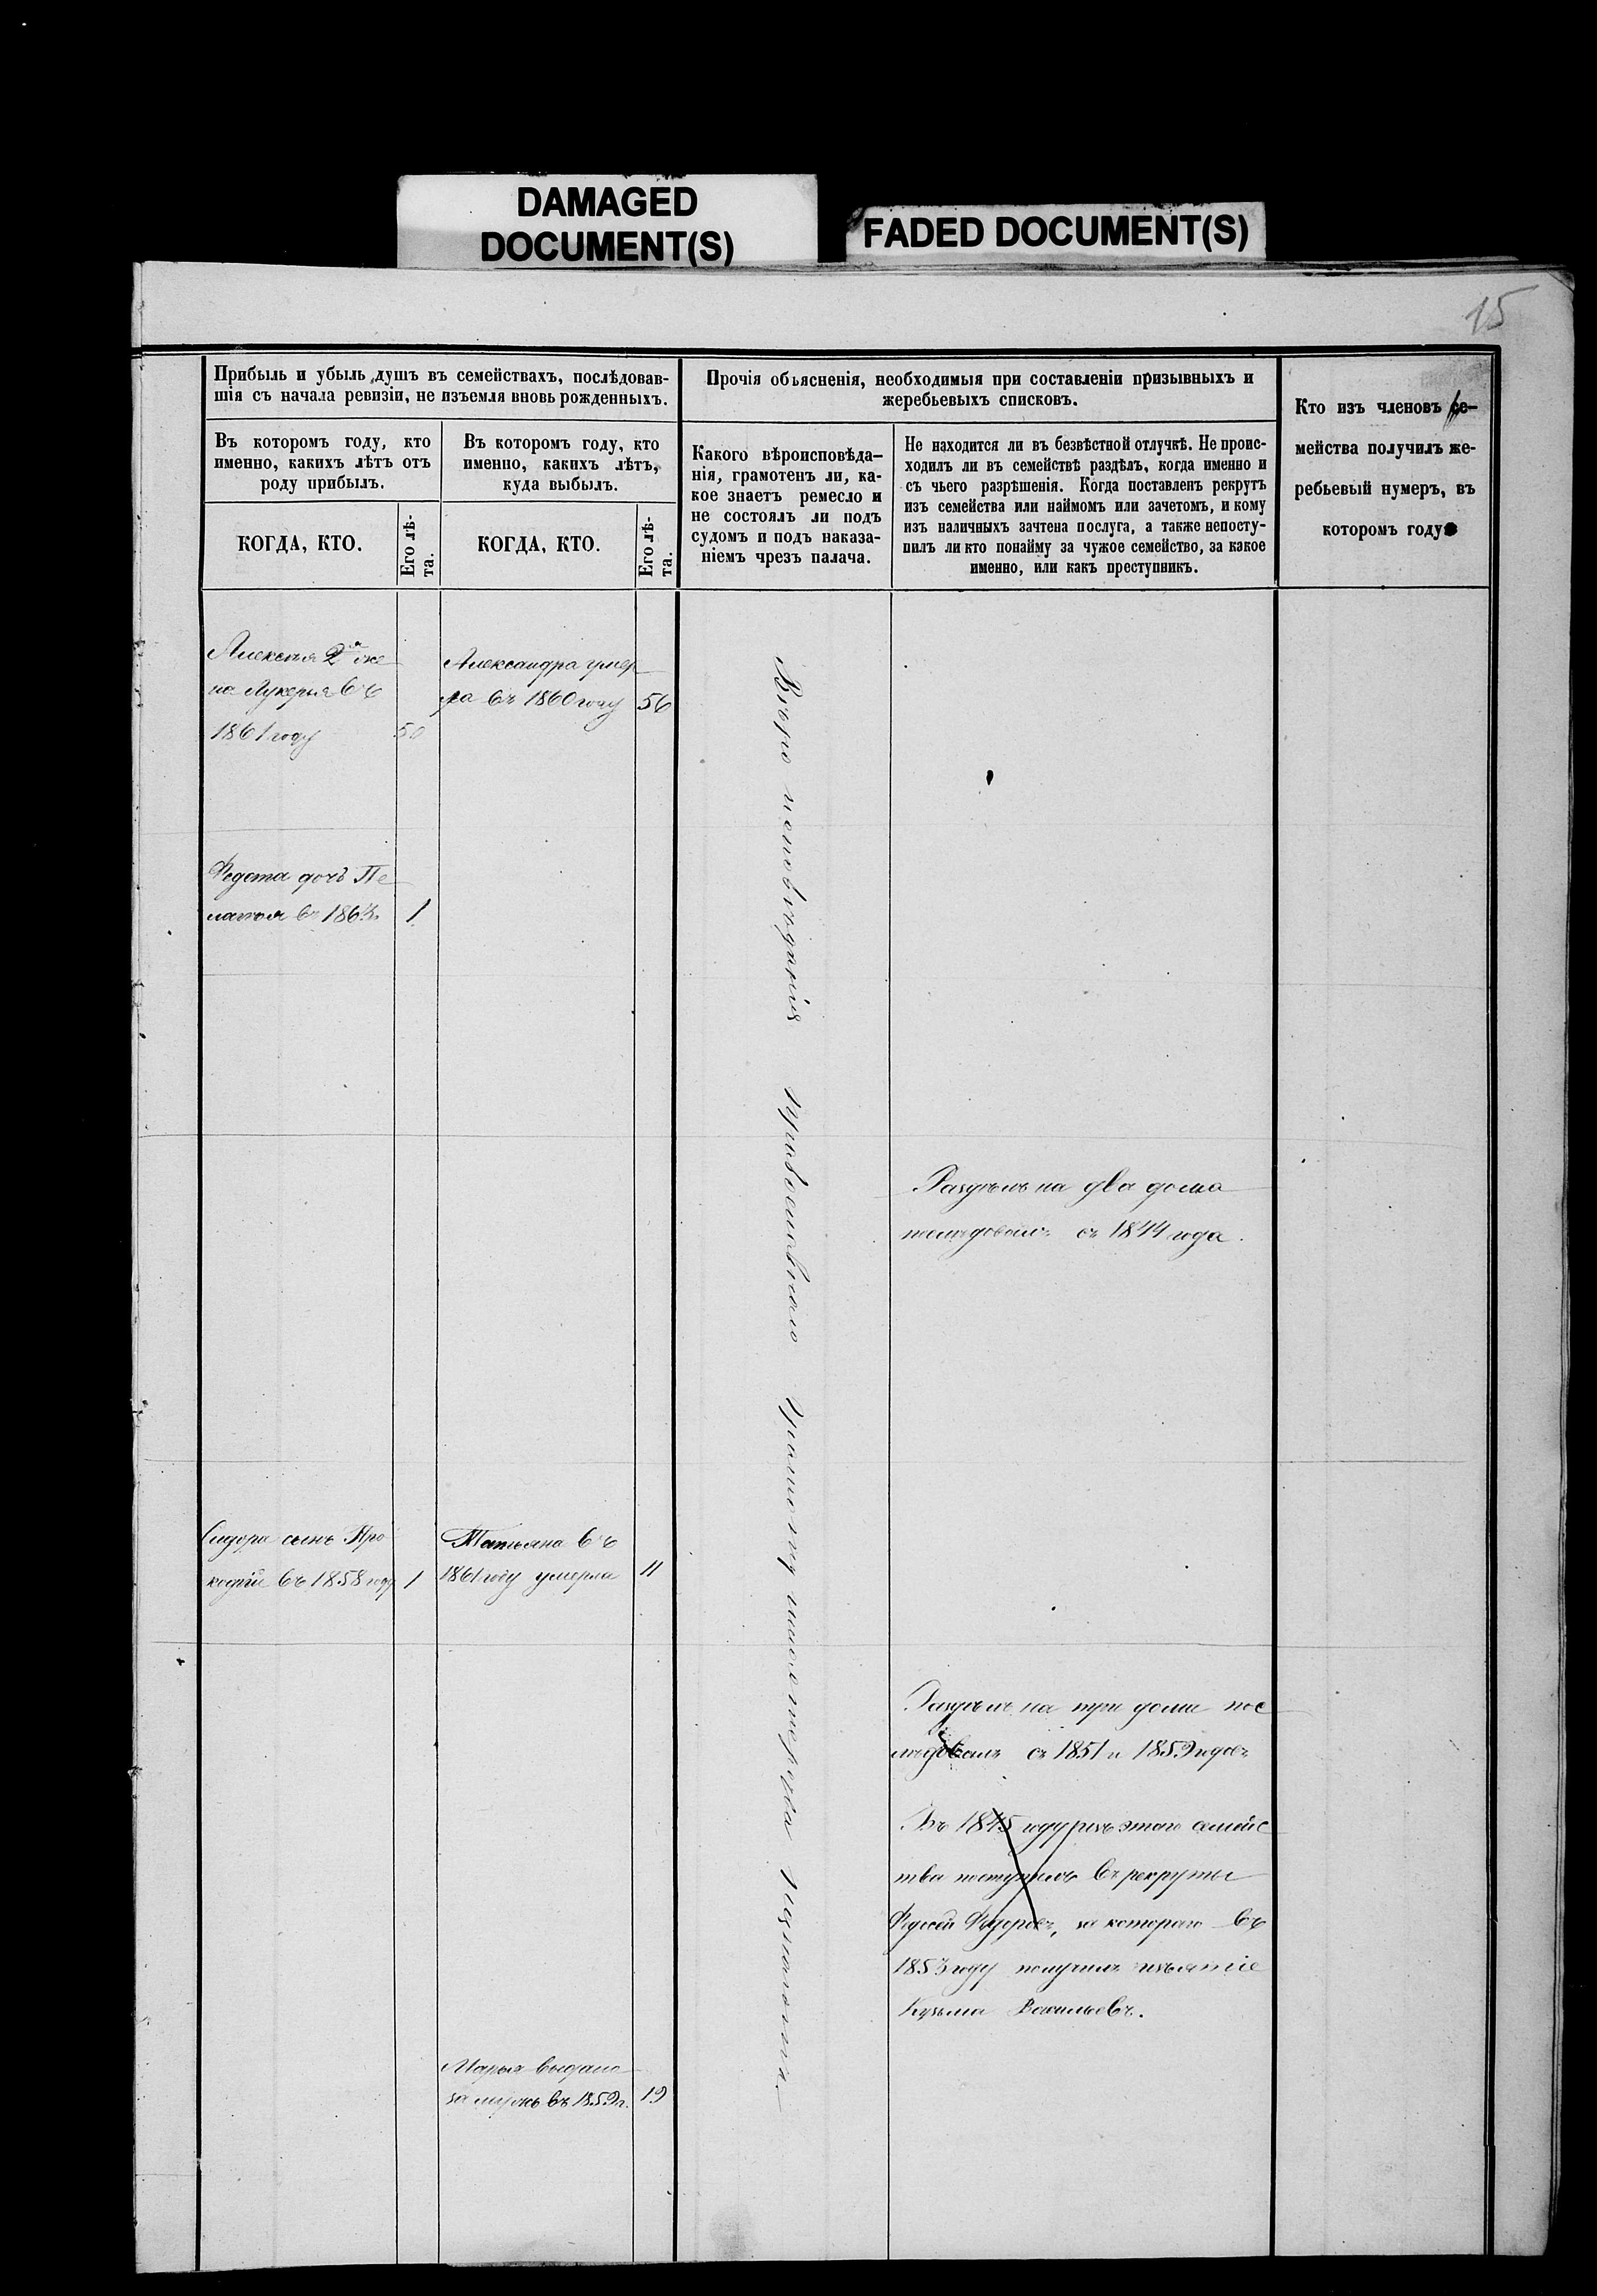 DAMAGED
DOCUMENT(S)
FADED DOCUMENT(S)
15
Прибыль и убыль душъ въ семействахъ, послѣдовав-
шія съ начала ревизіи, не изъемля вновь рожденныхъ.
Въ которомъ году, кто
именно, какихъ лѣтъ отъ
роду прибылъ.
КОГДА, КТО.
Его лѣ-
та.
Въ которомъ году, кто
именно, какихъ лѣтъ,
куда выбылъ.
КОГДА, КТО.
Его лѣ-
та.
Прочія объясненія, необходимыя при составленіи призывныхъ и
жеребьевыхъ списковъ.
Какого вѣроисповѣда-
нія, грамотенъ ли, ка-
кое знаетъ ремесло и
не состоялъ ли подъ
судомъ и подъ наказа-
ніемъ чрезъ палача.
Не находится ли въ безвѣстной отлучкѣ. Не проис-
ходилъ ли въ семействѣ раздѣлъ, когда именно и
съ чьего разрѣшенія. Когда поставленъ рекрутъ
изъ семейства или наймомъ или зачетомъ, и кому
изъ наличныхъ зачтена послуга, а также непосту-
пилъ ли кто понайму за чужое семейство, за какое
именно, или какъ преступникъ.
Кто изъ членовъ се-
мейства получилъ же-
ребьевый нумеръ, въ
которомъ году
Алексѣя 2я же
на Лукерья въ
1861 году 50
Александра умер
ла въ 1860 году 56
Федота дочь Пе
лагея въ 1863г. 1
Вѣро исповѣданія православнаго
Раздѣлъ на два дома
послѣдовалъ съ 1844 года.
Сидора сынъ Про
кофій въ 1858 году 1
Татьяна въ
1861 году умерла 11
Раздѣлъ на три дома пос
лѣдовалъ съ 1851 и 1859 годовъ
Въ 1845 году изъ этого семейс
тва поступилъ въ рекруты
Федоровъ, за котораго въ
1853 году получилъ изъятіе
Кузьма Васильевъ.
Марья выдана
за мужъ въ 1859г. 19